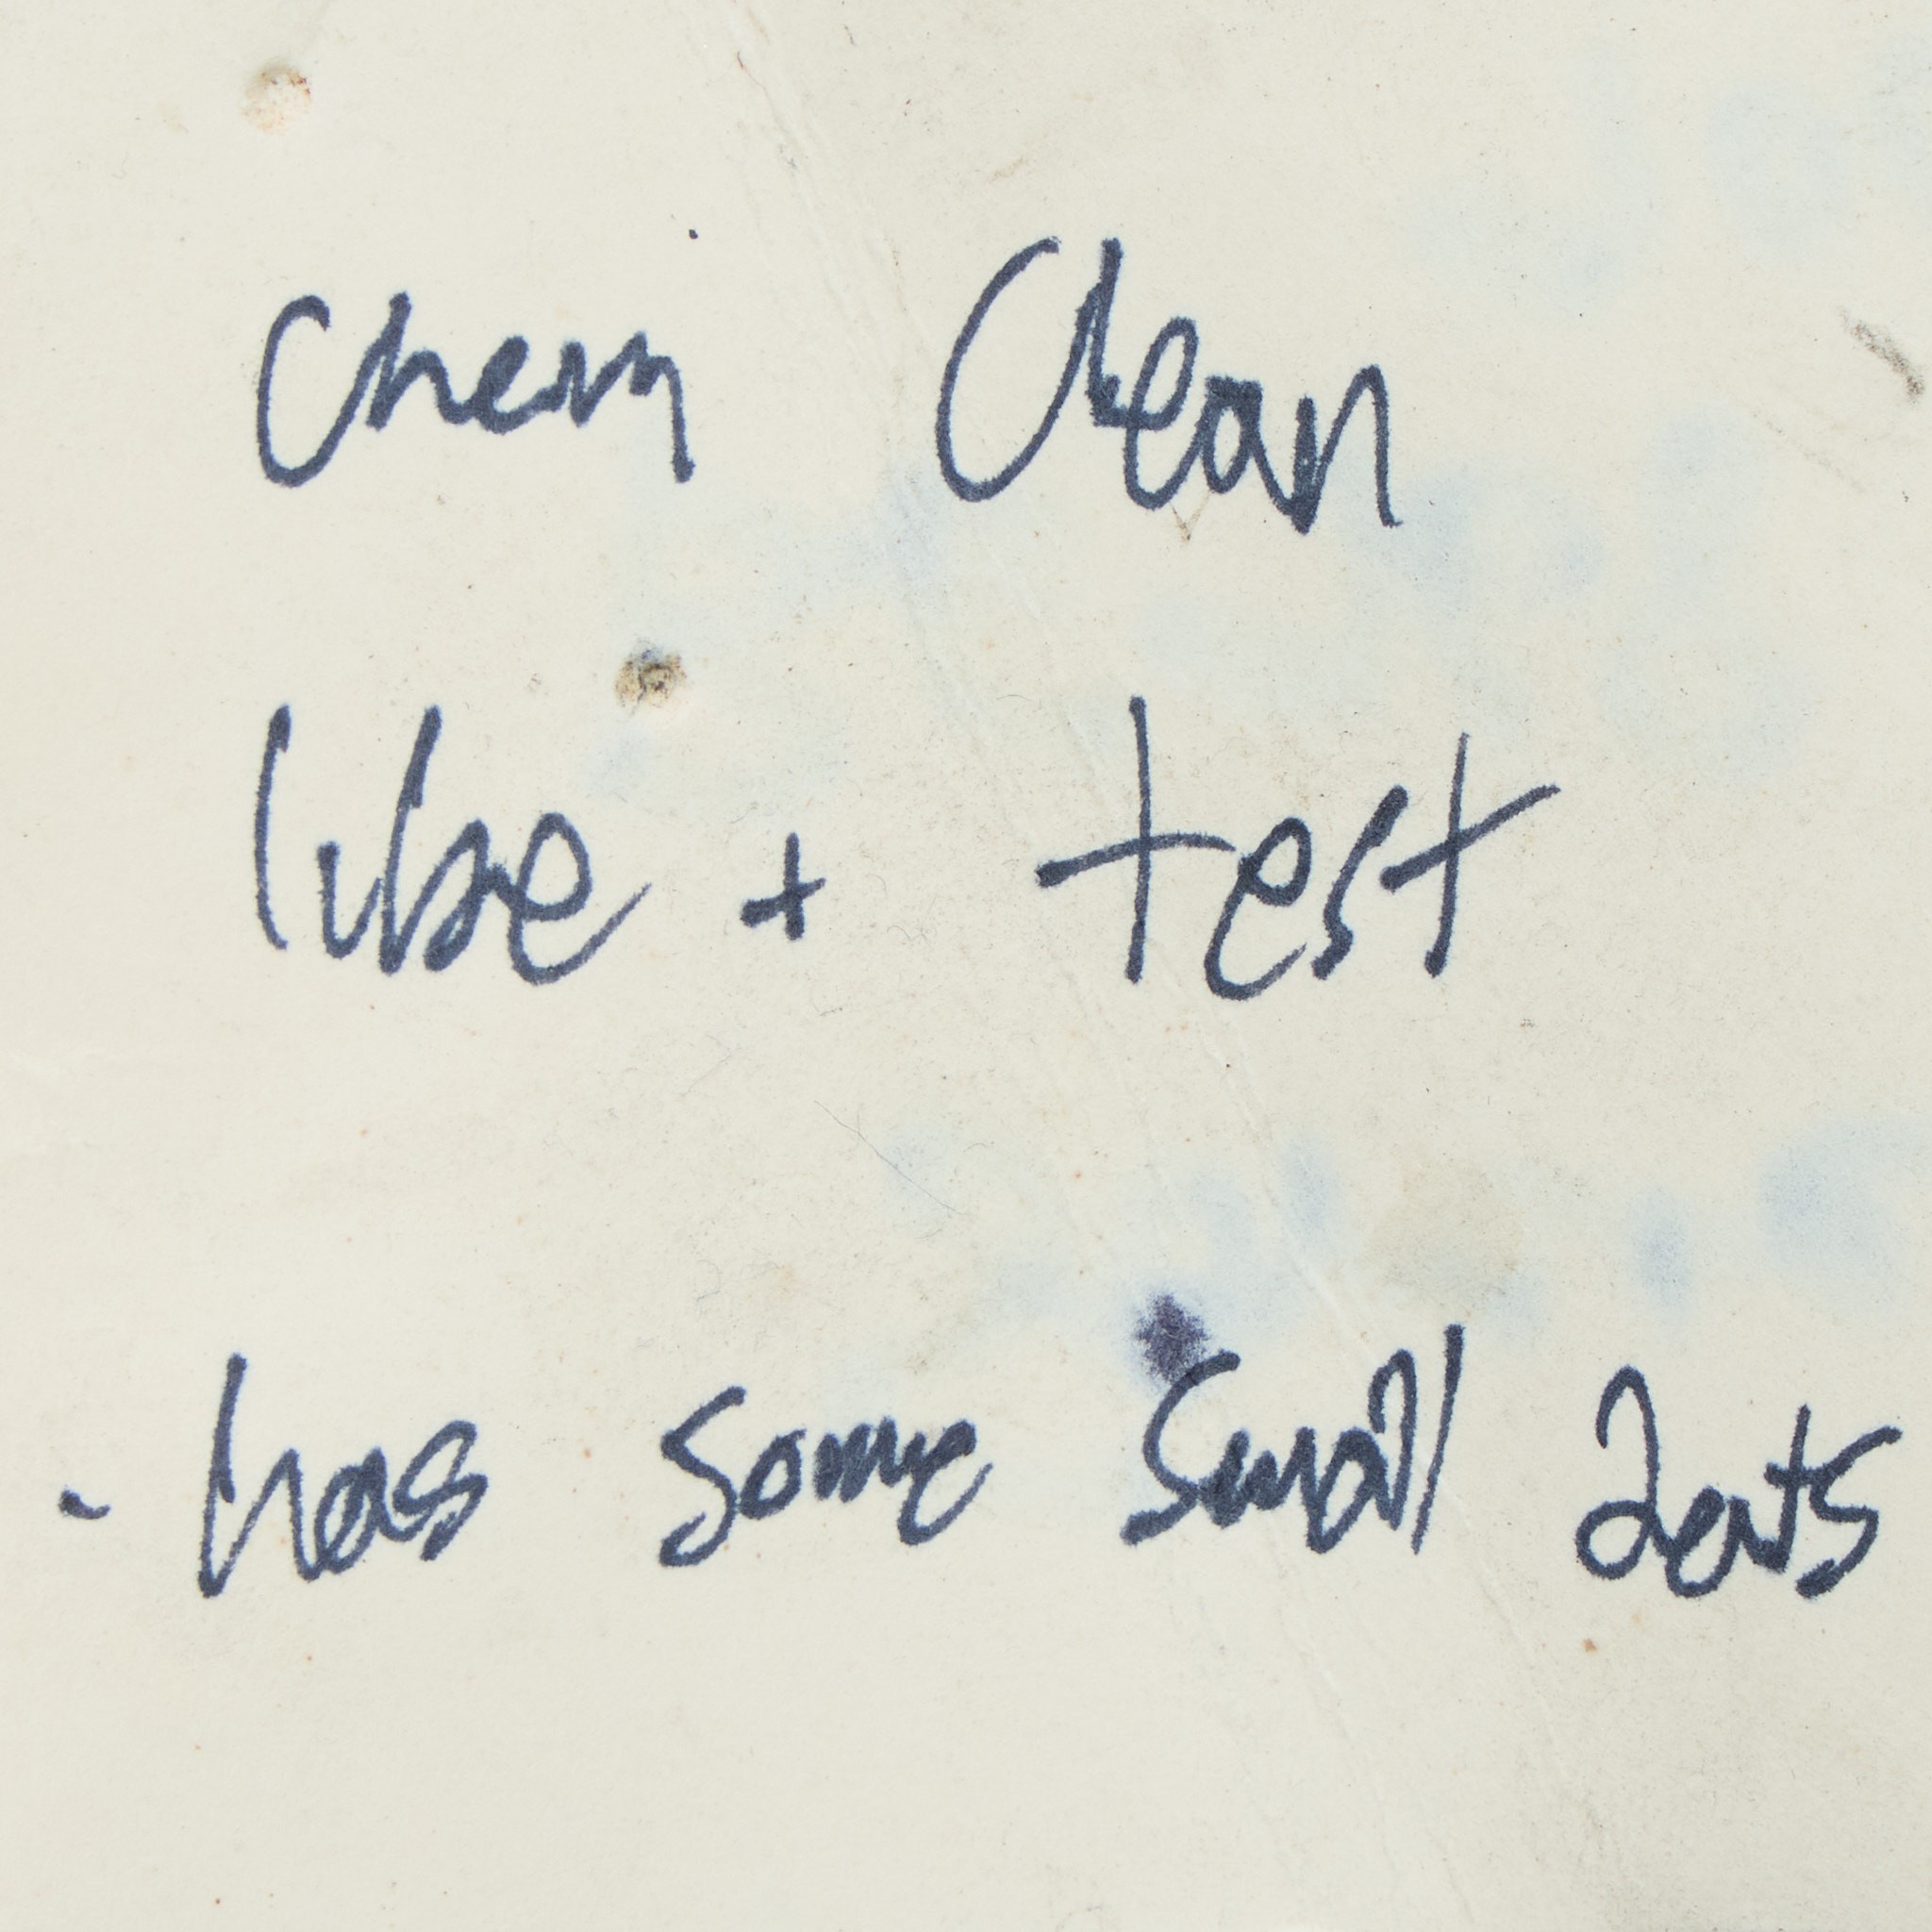 Chem Clean
lube + test
- has some small dents